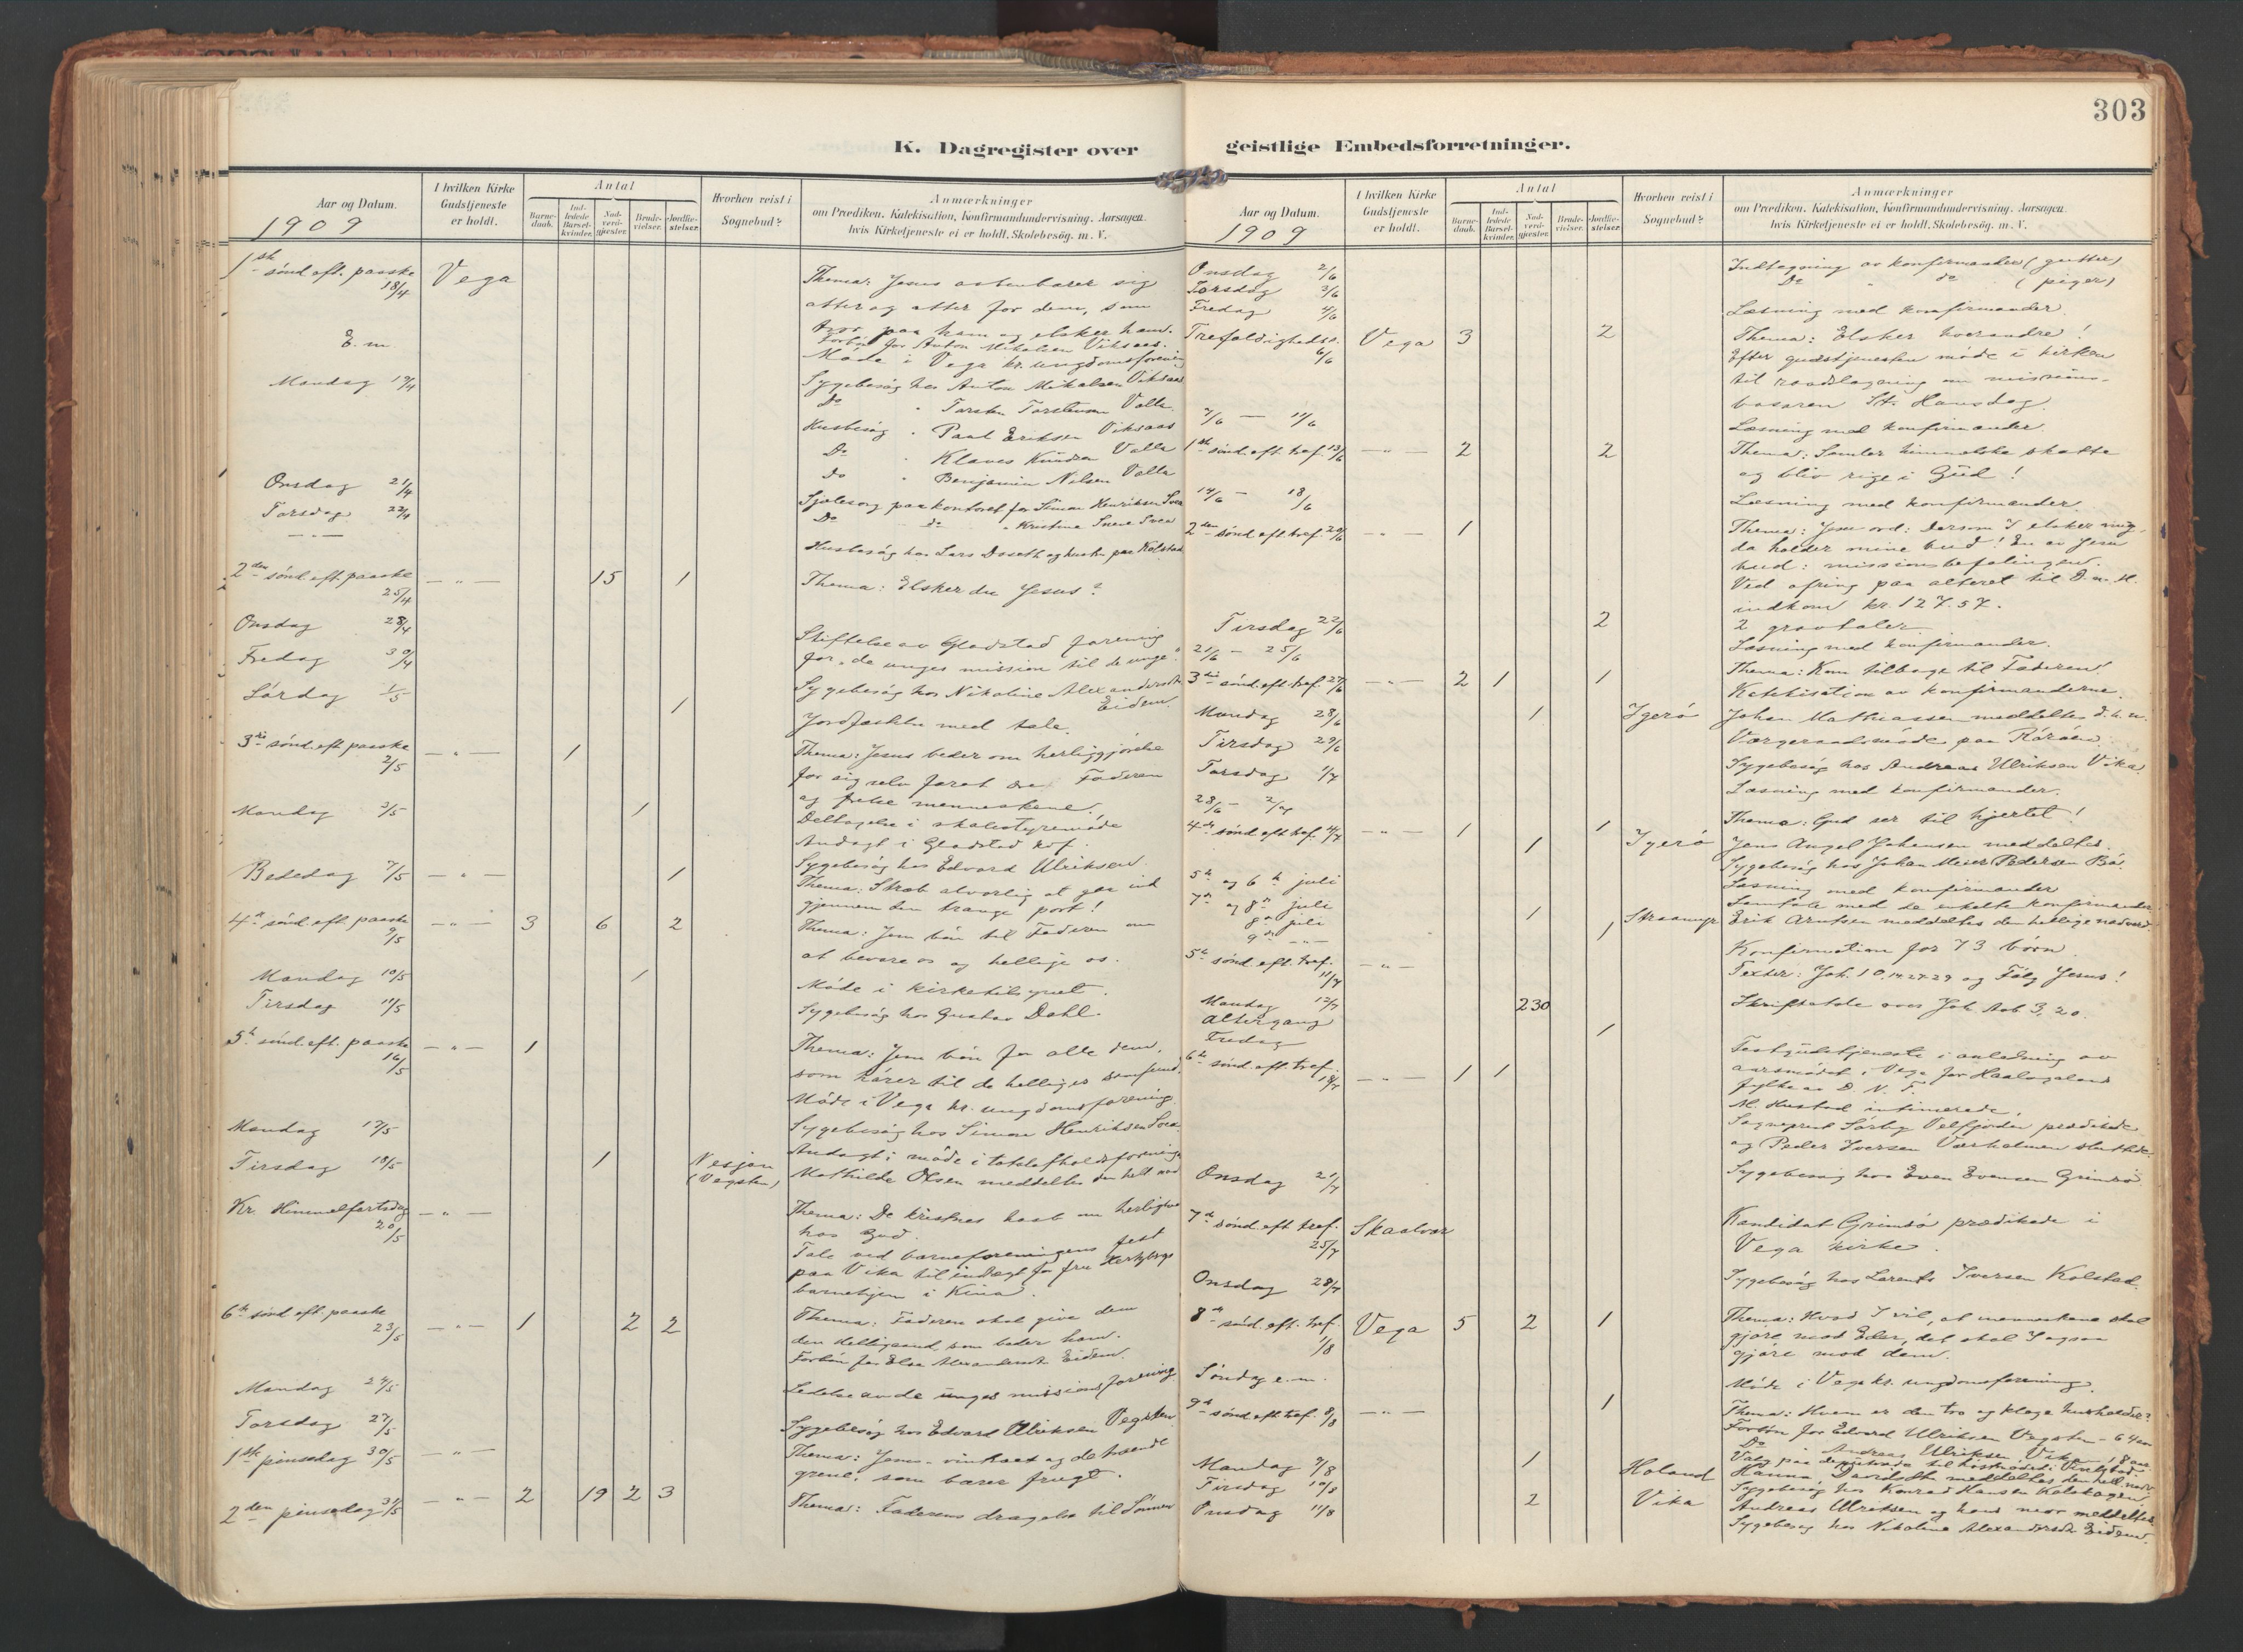 303
K. Dagregister over geistlige Embedsforretninger.
Aar og Datum.
1909
I hvilken Kirke Gudstjeneste er holdt.
Antal
Barnedaab.
Indledede Barselkvinder.
Nadverdgjester.
Brudevielser.
Jordfæstelser.
Hvorhen reist i Sognebud?
Anmærkninger
om Prædiken, Katekisation, Konfirmandundervisning, Aarsagen,
hvis Kirketjeneste ei er holdt, Skolebesøg, m. V.
1ste sønd. eft. paaske 18/4 Vega Thema: Jesus aabenbarer sig
atter og atter for dem, som
tror paa ham og elsker ham.
Forbøn for Anton Mikalsen Viksaas.
E. m Møde i Vega kr. ungdomsforening
Mandag 19/4 Sygebesøg hos Anton Mikalsen Viksaas
Do " Torsten Torstensen Valla
Husbesøg " Paal Eriksen Viksaas
Do " Klaus Knudsen Valla
do " Benjamin Nilsen Valla
Onsdag 21/4 Sjælesorg paa kontoret for Simon Henriksen Svea
Torsdag 22/4 Do do " Kristine Svea
— " — Husbesøg hos Lars Doseth og hustru paa Kolstad
2den sønd. eft. paaske 25/4 — " — 15 1 Thema: Elsker du Jesus?
Onsdag 28/4 Stiftelse av Gladstad forening
for "de unges mission til de unge".
Fredag 30/4 Sygebesøg hos Nikoline Alexandersdtr Eidem.
Lørdag 1/5 1 Jordfæstelse med tale.
3die sønd. eft. paaske 2/5 — " — 1 Thema: Jesus beder om herliggjørelse
for sig selv forat Faderen
og frelse menneskene.
Mandag 3/5 1 Deltagelse i skolestyremøde
Andagt i Gladstad
Sygebesøg hos Edvard Ulriksen.
Bededag 7/5 — " — 1 Thema: Stræb alvorlig at gaa ind
gjennem den trange port!
4de sønd. eft. paaske 9/5 — " — 3 6 2 Thema: Jesu bøn til Faderen om
at bevare os og hellige os.
Mandag 10/5 1 Møde i kirketilsynet.
Tirsdag 11/5 Sygebesøg hos Gustav Dahl.
5te sønd. eft. paaske 16/5 — " — 1 Thema: Jesu bøn for alle dem,
som hører til de helliges samfund.
Møde i Vega kr. ungdomsforening
Mandag 17/5 Sygebesøg hos Simon Henriksen Svea.
Andagt i møde i totalafholdsforeningen
Tirsdag 18/5 1 Nesjan (Vegsten) Mathilde Olsen meddeltes den hell. nad
Kr. Himmelfartsdag 20/5 — " — Thema: De kristnes haab om herlighed
hos Gud.
Tale ved barneforeningens fest
paa Vika til indtægt for fru Hertzbergs
barnehjem i Kina.
6te sønd. eft. paaske 23/5 — " — 1 2 2 Thema: Faderen skal give dem
den Helligaand, som beder ham.
Forbøn for Elsa Alexandersdtr Eidem.
Mandag 24/5 Ledelse av de unges missionsforening
Torsdag 27/5 Sygebesøg hos Edvard Ulriksen Vegsten
1ste pinsedag 30/5 — " — Thema: Jesus – vintræet og de troende
grene, som bærer frugt.
2den pinsedag 31/5 — " — 2 19 2 3 Thema: Faderens dragelse til Sønnen
Aar og Datum.
1909
I hvilken Kirke Gudstjeneste er holdt.
Antal
Barnedaab.
Indledede Barselkvinder.
Nadverdgjester.
Brudevielser.
Jordfæstelser.
Hvorhen reist i Sognebud?
Anmærkninger
om Prædiken, Katekisation, Konfirmandundervisning, Aarsagen,
hvis Kirketjeneste ei er holdt, Skolebesøg, m. V.
Onsdag 2/6 Indtagning av konfirmander (gutter)
Torsdag 3/6 Do " do (piger)
Fredag 4/6 Læsning med konfirmander.
Trefoldighedss. 6/6 Vega 3 2 Thema: Elsker hverandre!
Efter gudstjenesten møde i kirken
til raadslagning om missionsbasaren
St. Hansdag.
7/6 — 11/6 Læsning med konfirmander.
1ste sønd. eft. tref. 13/6 — " — 2 2 Thema: Samler himmelske skatte
og bliv rige i Gud!
14/6 — 18/6 Læsning med konfirmander.
2den sønd. eft. tref. 20/6 — " — 1 Thema: Jesu ord: Dersom I elsker mig,
da holder mine bud! En av Jesu
bud: missionsbefalingen.
Ved ofring paa alteret til D. n. M.
indkom kr. 127.57.
Tirsdag 22/6 2 2 gravtaler
21/6 — 25/6 Læsning med konfirmander.
3die sønd. eft. tref. 27/6 — " — 2 1 1 Thema: Kom tilbage til Faderen!
Katekisation av konfirmanderne.
Mandag 28/6 1 Ygerø Johan Mathiassen meddeltes d. h. n.
Tirsdag 29/6 Værgeraadsmøde paa Rørøen
Torsdag 1/7 Sygebesøg hos Andreas Ulriksen Vika.
28/6 — 2/7 Læsning med konfirmander.
4de sønd. eft. tref. 4/7 — " — 1 1 Thema: Gud ser til hjertet!
1 Ygerø Jens Angel Johansen meddeltes.
Sygebesøg hos Johan Meier Pedersen Bø.
5te og 6te juli Læsning med konfirmander
7de og 8de juli Samtale med de enkelte konfirmander.
8de juli 1 Erik Arntsen meddeltes den hellige nadverd.
9de — " — 1
5te sønd. eft. tref. 11/7 — " — Konfirmation for 73 børn.
Texter: Joh. 10, 14.27-29 og Følg Jesus!
Mandag 12/7 Altergang 230 Skriftetale over Joh. Aab. 3, 20.
Fredag 1
6te sønd. eft. tref. 18/7 — " — 1 1 Festgudstjeneste i anledning av
aarsmødet i Vega for Haalogaland
fylke av D. N. T.
M. Hustad intimerede,
Sogneprest Sørby Velfjorden prædikede
og Peder Iversen Værholmen sluttede.
Onsdag 21/7 Sygebesøg hos Even Evensen Grimsø
7de sønd. eft. tref. 25/7 Skaalvær Kandidat Grimsø prædikede i
Vega kirke.
Onsdag 28/7 Sygebesøg hos Lorents Iversen Kolstad.
8de sønd. eft. tref. 1/8 Vega 5 2 1 Thema: Hvad I vil, at menneskene skal
gjøre mod Eder, det skal I ogsaa
gjøre mod dem.
Søndag e. m. Møde i Vega kr. ungdomsforening.
9de sønd. eft. tref. 8/8 — " — 1 Thema: Hvem er den tro og kloge husholder?
Forbøn for Edvard Ulriksen Vegsten – 64 aar
Do " Andreas Ulriksen Vika, 18 aar
Mandag 9/8 1 Holand Hanna Davidsdtr meddeltes den hell. nadv.
Tirsdag 10/8 Sygebesøg hos Konrad Hansen Kolskogen
Onsdag 11/8 2 Vika Andreas Ulriksen og hans mor meddeltes.
Sygebesøg hos Nikoline Alexandersdtr Eidem.